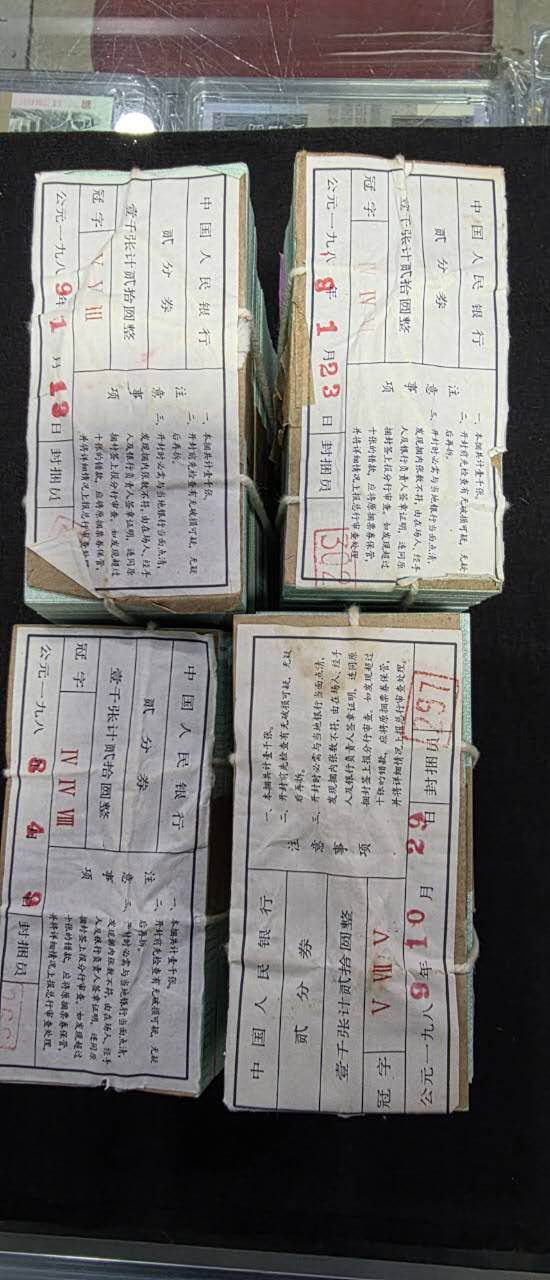 中国人民银行
贰分券
壹千张计贰拾圆整
冠字 V V III
公元一九八9年1月13日 封捆员
注意事项
一、本捆共计壹千张。
二、开封前先检查有无破损可疑，无疑
后再拆。
三、开封时必需与当地银行当面点清，
发现捆内张数不符，由在场人、经手
人及银行负责人签章证明，连同原
捆封签上报分行审查，如发现超过
十张的错款，应将原捆票券保管，
并将详细情况上报总行审查处理
中国人民银行
贰分券
壹千张计贰拾圆整
冠字 IV IV
公元一九8年1月23日 封捆员 302
注意事项
一、本捆共计壹千张。
二、开封前先检查有无破损可疑，无疑
后再拆。
三、开封时必需与当地银行当面点清，
发现捆内张数不符，由在场人、经手
人及银行负责人签章证明，连同原
捆封签上报分行审查，如发现超过
十张的错款，应将原捆票券保管
并将详细情况上报总行审查处理
中国人民银行
贰分券
壹千张计贰拾圆整
冠字 IV IV VIII
公元一九八8 4 9 封捆员
注意事项
一、本捆共计壹千张。
二、开封前先检查有无破损可疑，无疑
后再拆。
三、开封时必需与当地银行当面点清，
发现捆内张数不符，由在场人、经手
人及银行负责人签章证明，连同原
捆封签上报分行审查，如发现超过
十张的错款，应将原捆票券保管，
并将详细情况上报总行审查处理。
中国人民银行
贰分券
壹千张计贰拾圆整
冠字 V VIII V
公元一九八8年10月29日 封捆员 287
注意事项
一、本捆共计壹千张。
二、开封前先检查有无破损可疑，无疑
后再拆。
三、开封时必需与当地银行当面点清，
发现捆内张数不符，由在场人、经手
人及银行负责人签章证明，连同原
捆封签上报分行审查，如发现超过
十张的错款，应将原捆票券保管，
并将详细情况上报总行审查处理。